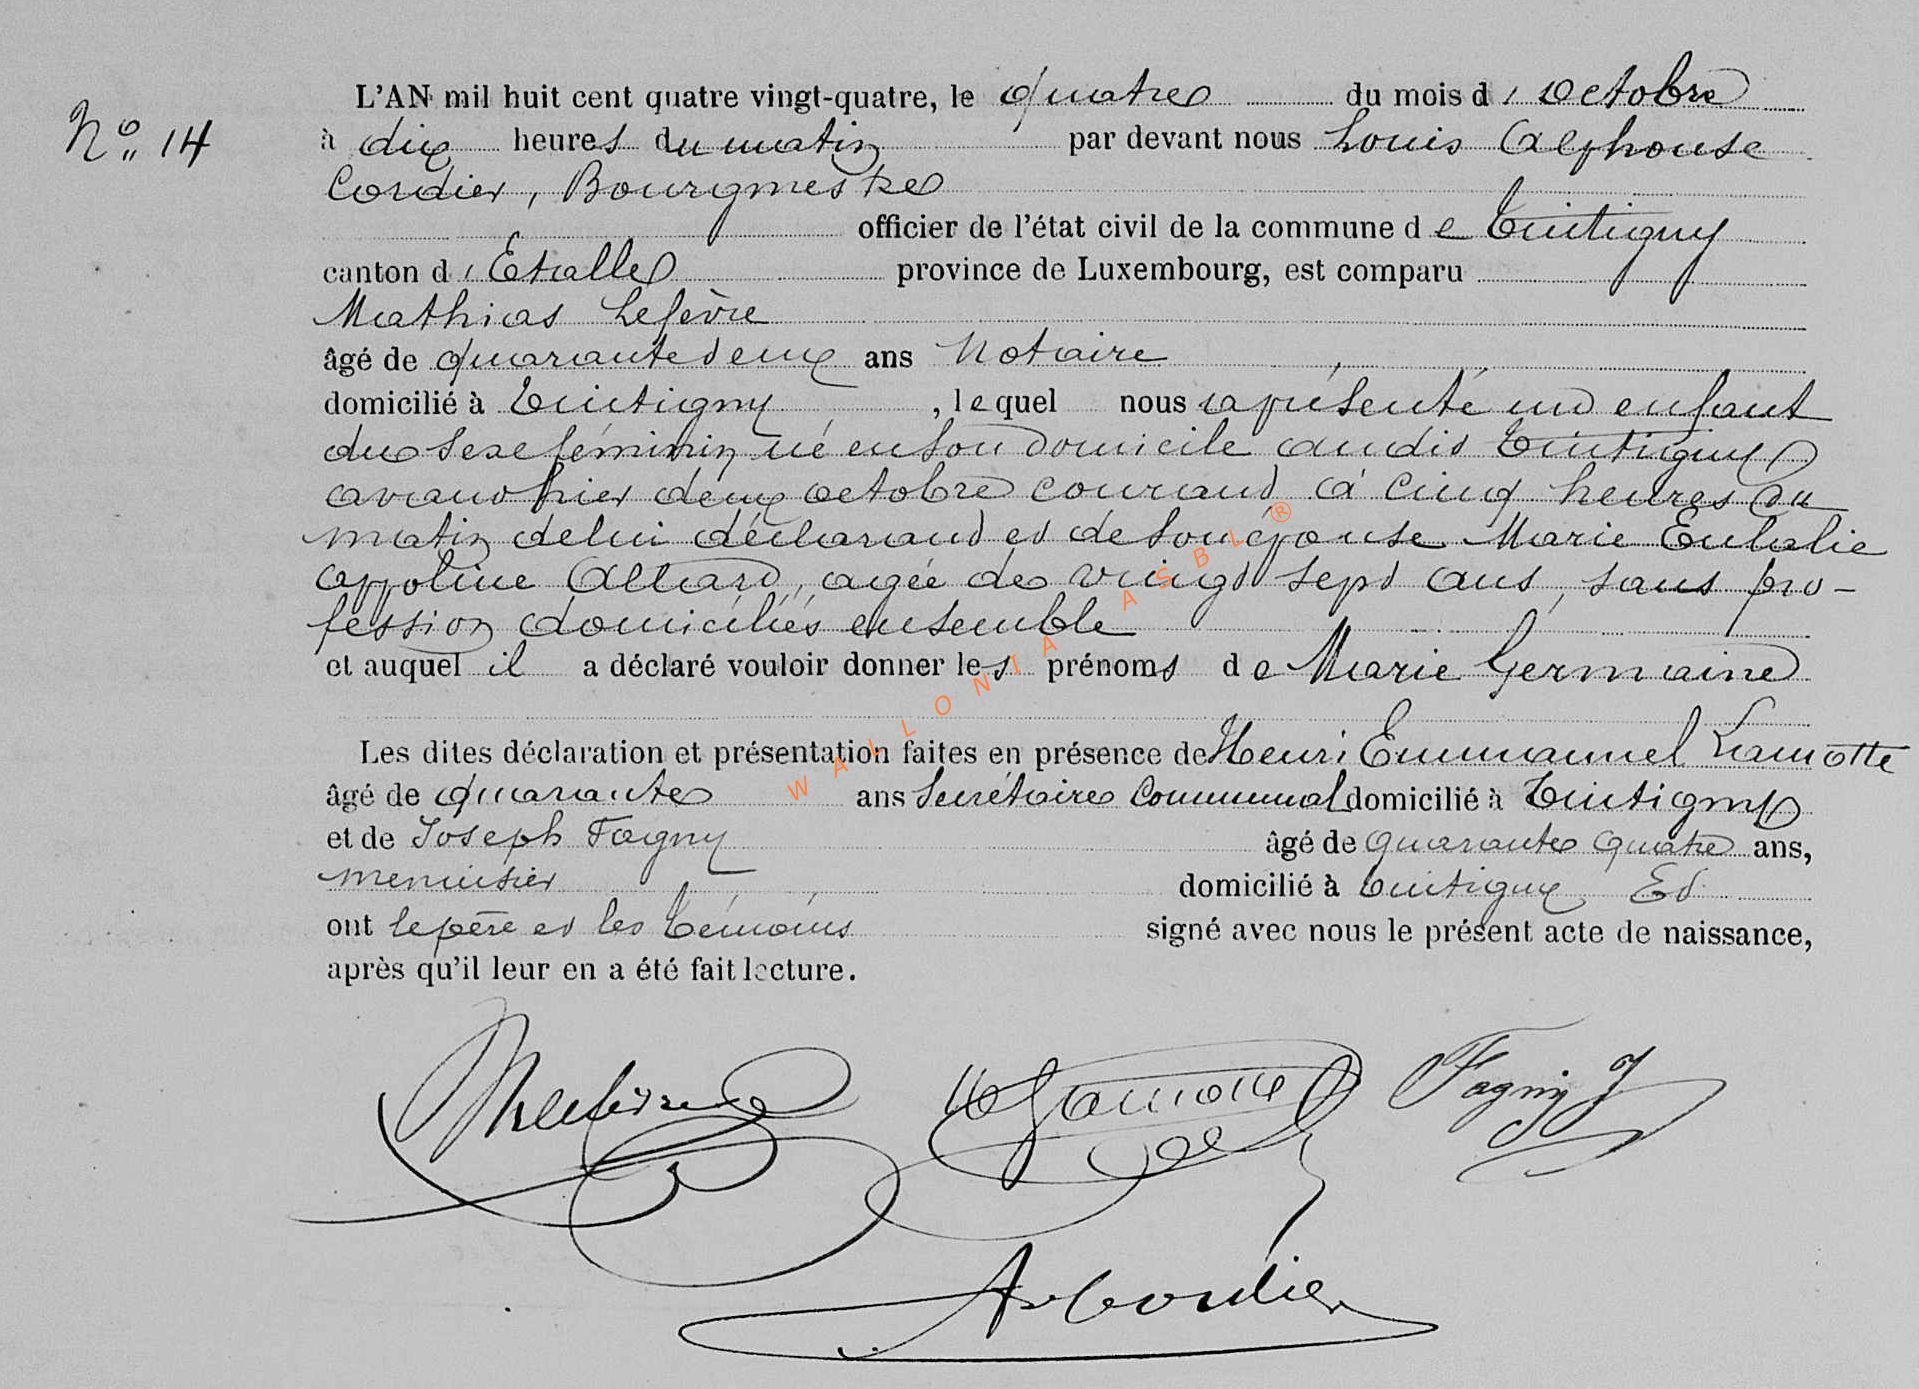 L'AN mil huit cent quatre vingt-quatre, le quatre du mois d' octobre
No 14
à dix heures du matin par devant nous Louis Alphonse
Cordier, Bourgmestre
officier de l'état civil de la commune de Tintigny
canton d' Etalle province de Luxembourg, est comparu
Mathias Lefèvre
âgé de quarante deux ans Notaire
domicilié à Tintigny, lequel nous a présenté un enfant
du sexe féminin né en son domicile audit Tintigny
avant hier deux octobre courant à cinq heures du
matin de lui déclarant et de son épouse Marie Eulalie
Appoline Allard, agée de vingt sept ans, sans pro-
fession domiciliés ensemble
et auquel il a déclaré vouloir donner les prénoms de Marie Germaine
Les dites déclaration et présentation faites en présence de Henri Emmanuel Lamotte
âgé de quarante ans Secrétaire Communal domicilié à Tintigny
et de Joseph Fagny âgé de quarante quatre ans,
menuisier domicilié à Tintigny Et
ont le père et les témoins signé avec nous le présent acte de naissance,
après qu'il leur en a été fait lecture.
Lamotte Fagny J
Cordier
WALLONIA ASBL ®